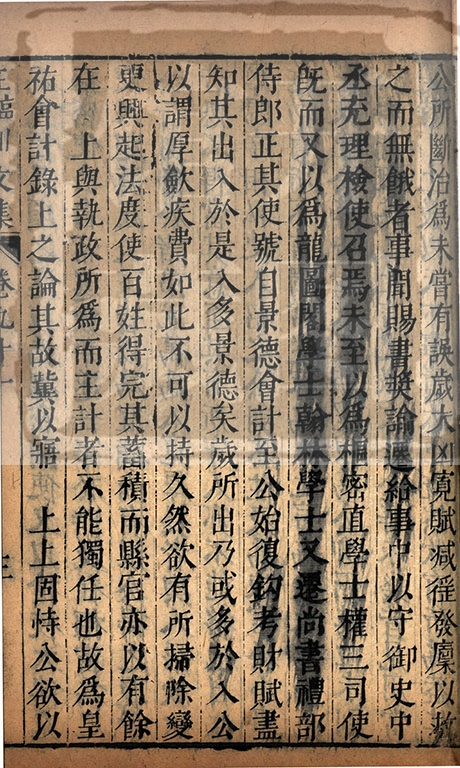 公所斷治爲未嘗有誤歲大凶寬賦減徭發廩以救
之而無餓者事聞賜書奬諭遷給事中以守御史中
丞充理檢使召焉未至以爲樞密直學士權三司使
旣而又以爲龍圖閣學士翰林學士又遷尚書禮部
侍郎正其使號自景德會計至公始復鈎考財賦盡
知其出入於是入多景德矣歲所出乃或多於入公
以謂厚斂疾費如此不可以持久然欲有所掃除變
更興起法度使百姓得完其蓄積而縣官亦以有餘
在 上與執政所爲而主計者不能獨任也故爲皇
祐會計錄上之論其故冀以寤 上上固恃公欲以
王臨川文集 卷九十一 三